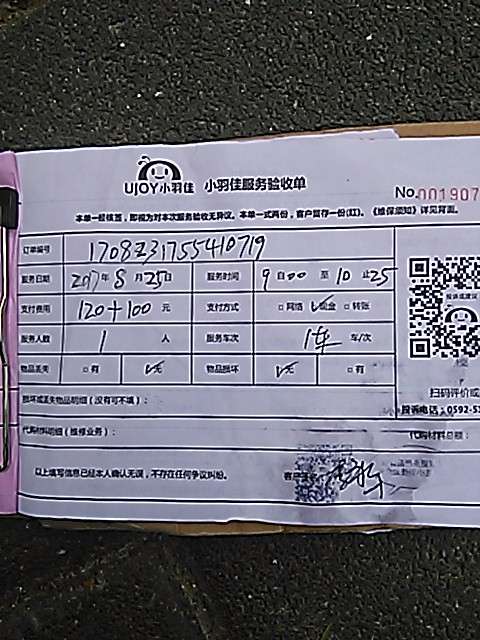 UJOY小羽佳 小羽佳服务验收单
No.001907
本单一经核签，即视为对本次服务验收无异议。本单一式两份，客户留存一份(红)。《维保须知》详见背面。
订单编号
服务日期 2017年8月25日 服务时间 9点00至10止25
支付费用 120+100元 支付方式 □网络 ☑现金 □转账
服务人数 1人 服务车次 1车 车/次
物品丢失 □有 ☑无 物品损坏 ☑无 □有
投诉或建议
扫码评价或
损坏或丢失物品明细（没有可不填）：
投诉电话：0592-5
代购材料明细（维修业务）：
代购材料总额：
以上填写信息已经本人确认无误，不存在任何争议纠纷。